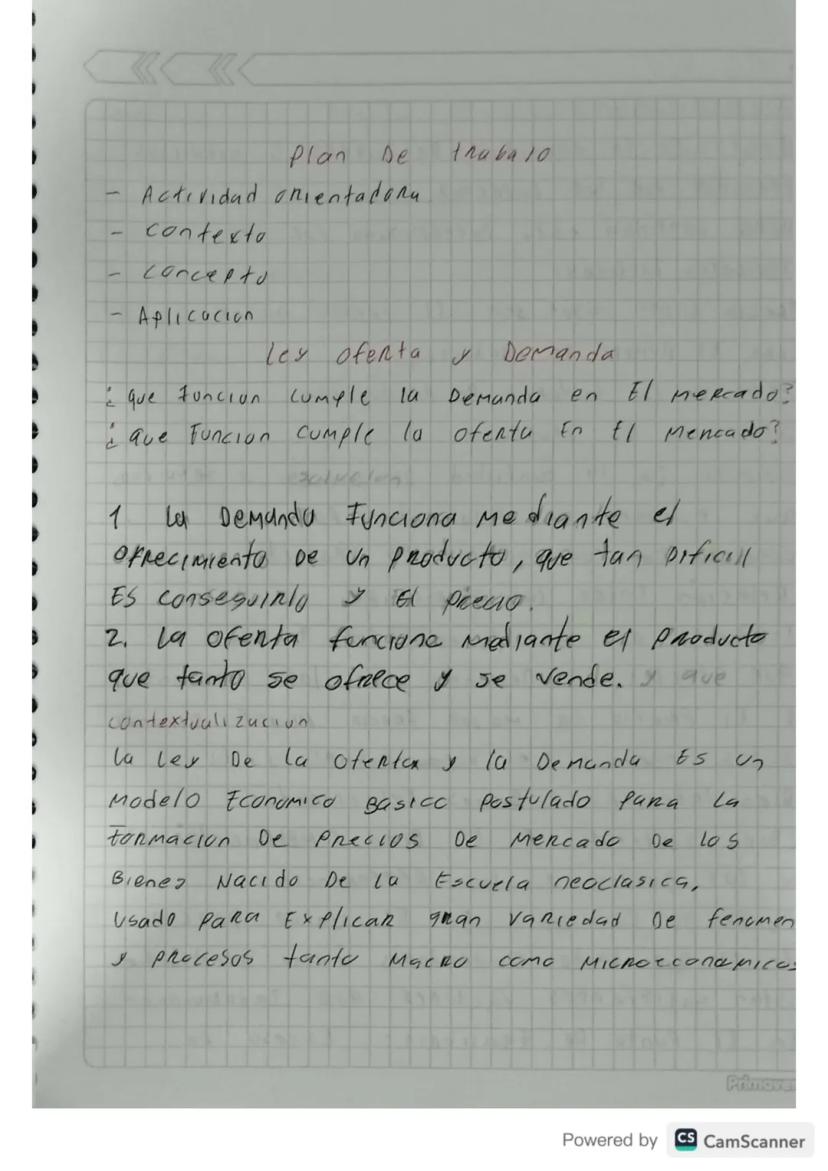 Plan De trabajo
- Actividad orientadora
- contexto
- concepto
- Aplicacion
Ley oferta y Demanda
¿ que funcion cumple la Demanda en El mercado?
¿ que Funcion cumple la oferta En El mercado?
1 La Demanda Funciona mediante el
ofrecimiento De un producto, que tan Dificil
Es conseguirlo y El precio.
2. La oferta funciona mediante el producto
que tanto se ofrece y se vende. y que
contextualizacion
La Ley De la oferta y la Demanda Es un
Modelo Economico Basico postulado para La
Formacion De precios De mercado De los
Bienes Nacido De La Escuela neoclasica,
Usado para Explicar gran variedad De fenomen
y procesos tanto Macro como Microeconomicos
Primave
Powered by CS CamScanner